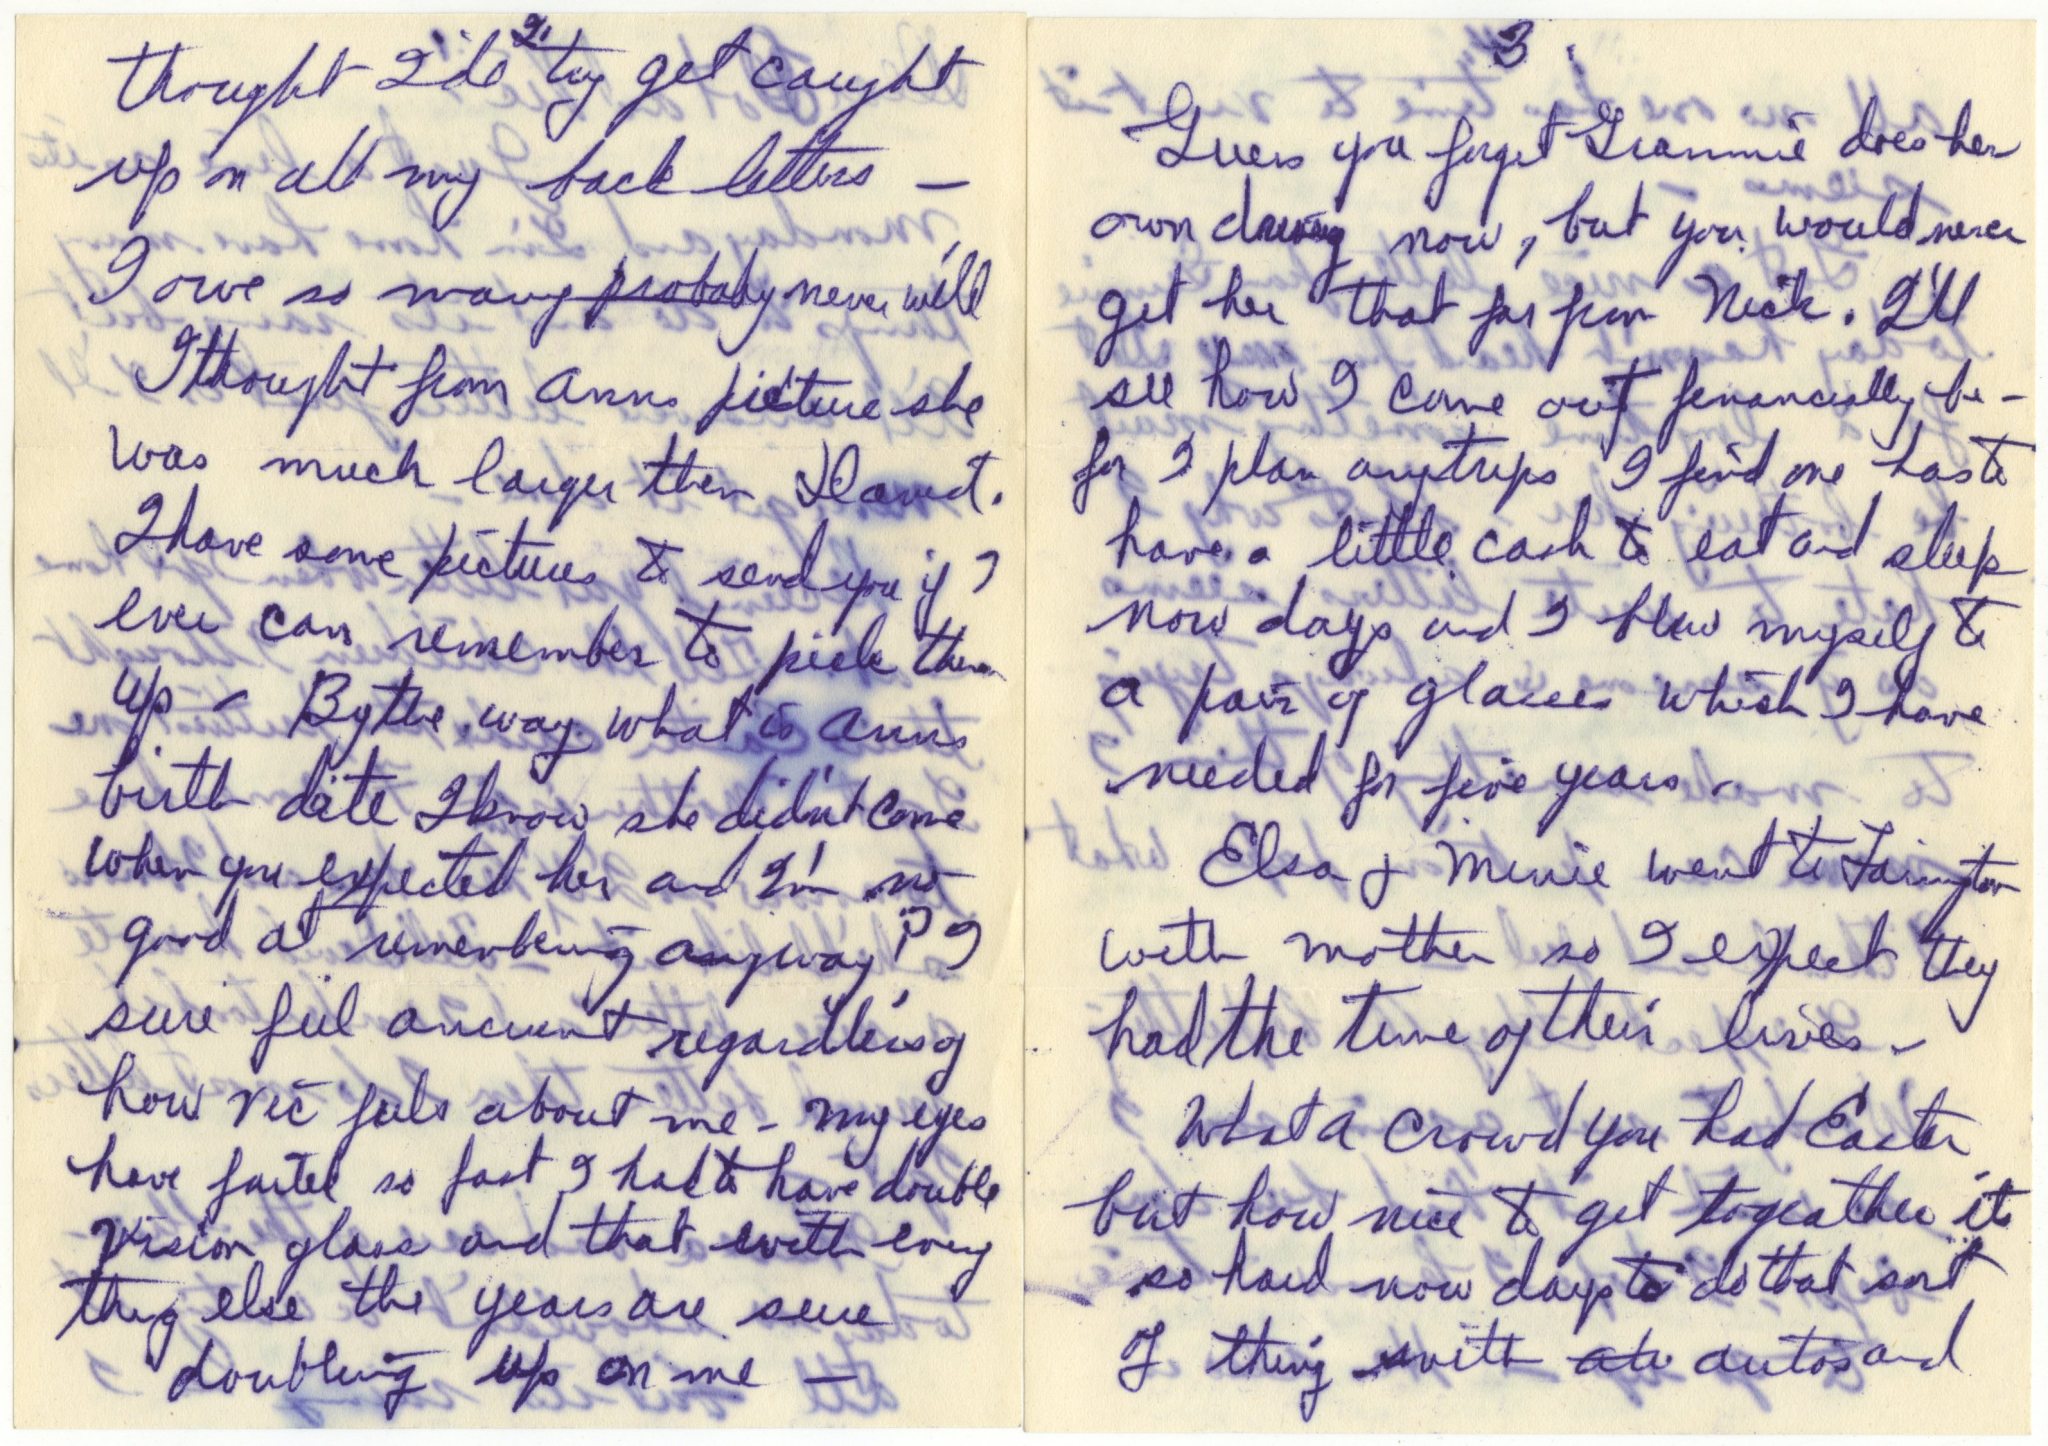 2.
thought I'de try get caught
up on all my back letters —
I owe so many probably never will
I thought from Anns picture she
was much larger then David.
I have some pictures to send you if I
ever can remember to pick them
up - By the way what is Anns
birth date I know she didn't come
when you expected her and I'm no
good at remembering anyway!? I
sure feel ancient regardless of
how Vic feels about me - My eyes
have failed so fast I had to have double
vision glass and that with every
thing else the years are sure
doubling up on me —
3.
Guess you forget Grammie does her
own driving now, but you would never
get her that far from Nick. I'll
see how I come out financially be-
for I plan any trips I find one has to
have a little cash to eat and sleep
now days and I blew myself to
a pair of glasses which I have
needed for five years -
Elsa & Minie went to Farington
with mother so I expect they
had the time of their lives -
What a crowd you had Easter
but how nice to get togeather its
so hard now days to do that sort
of thing with autos and